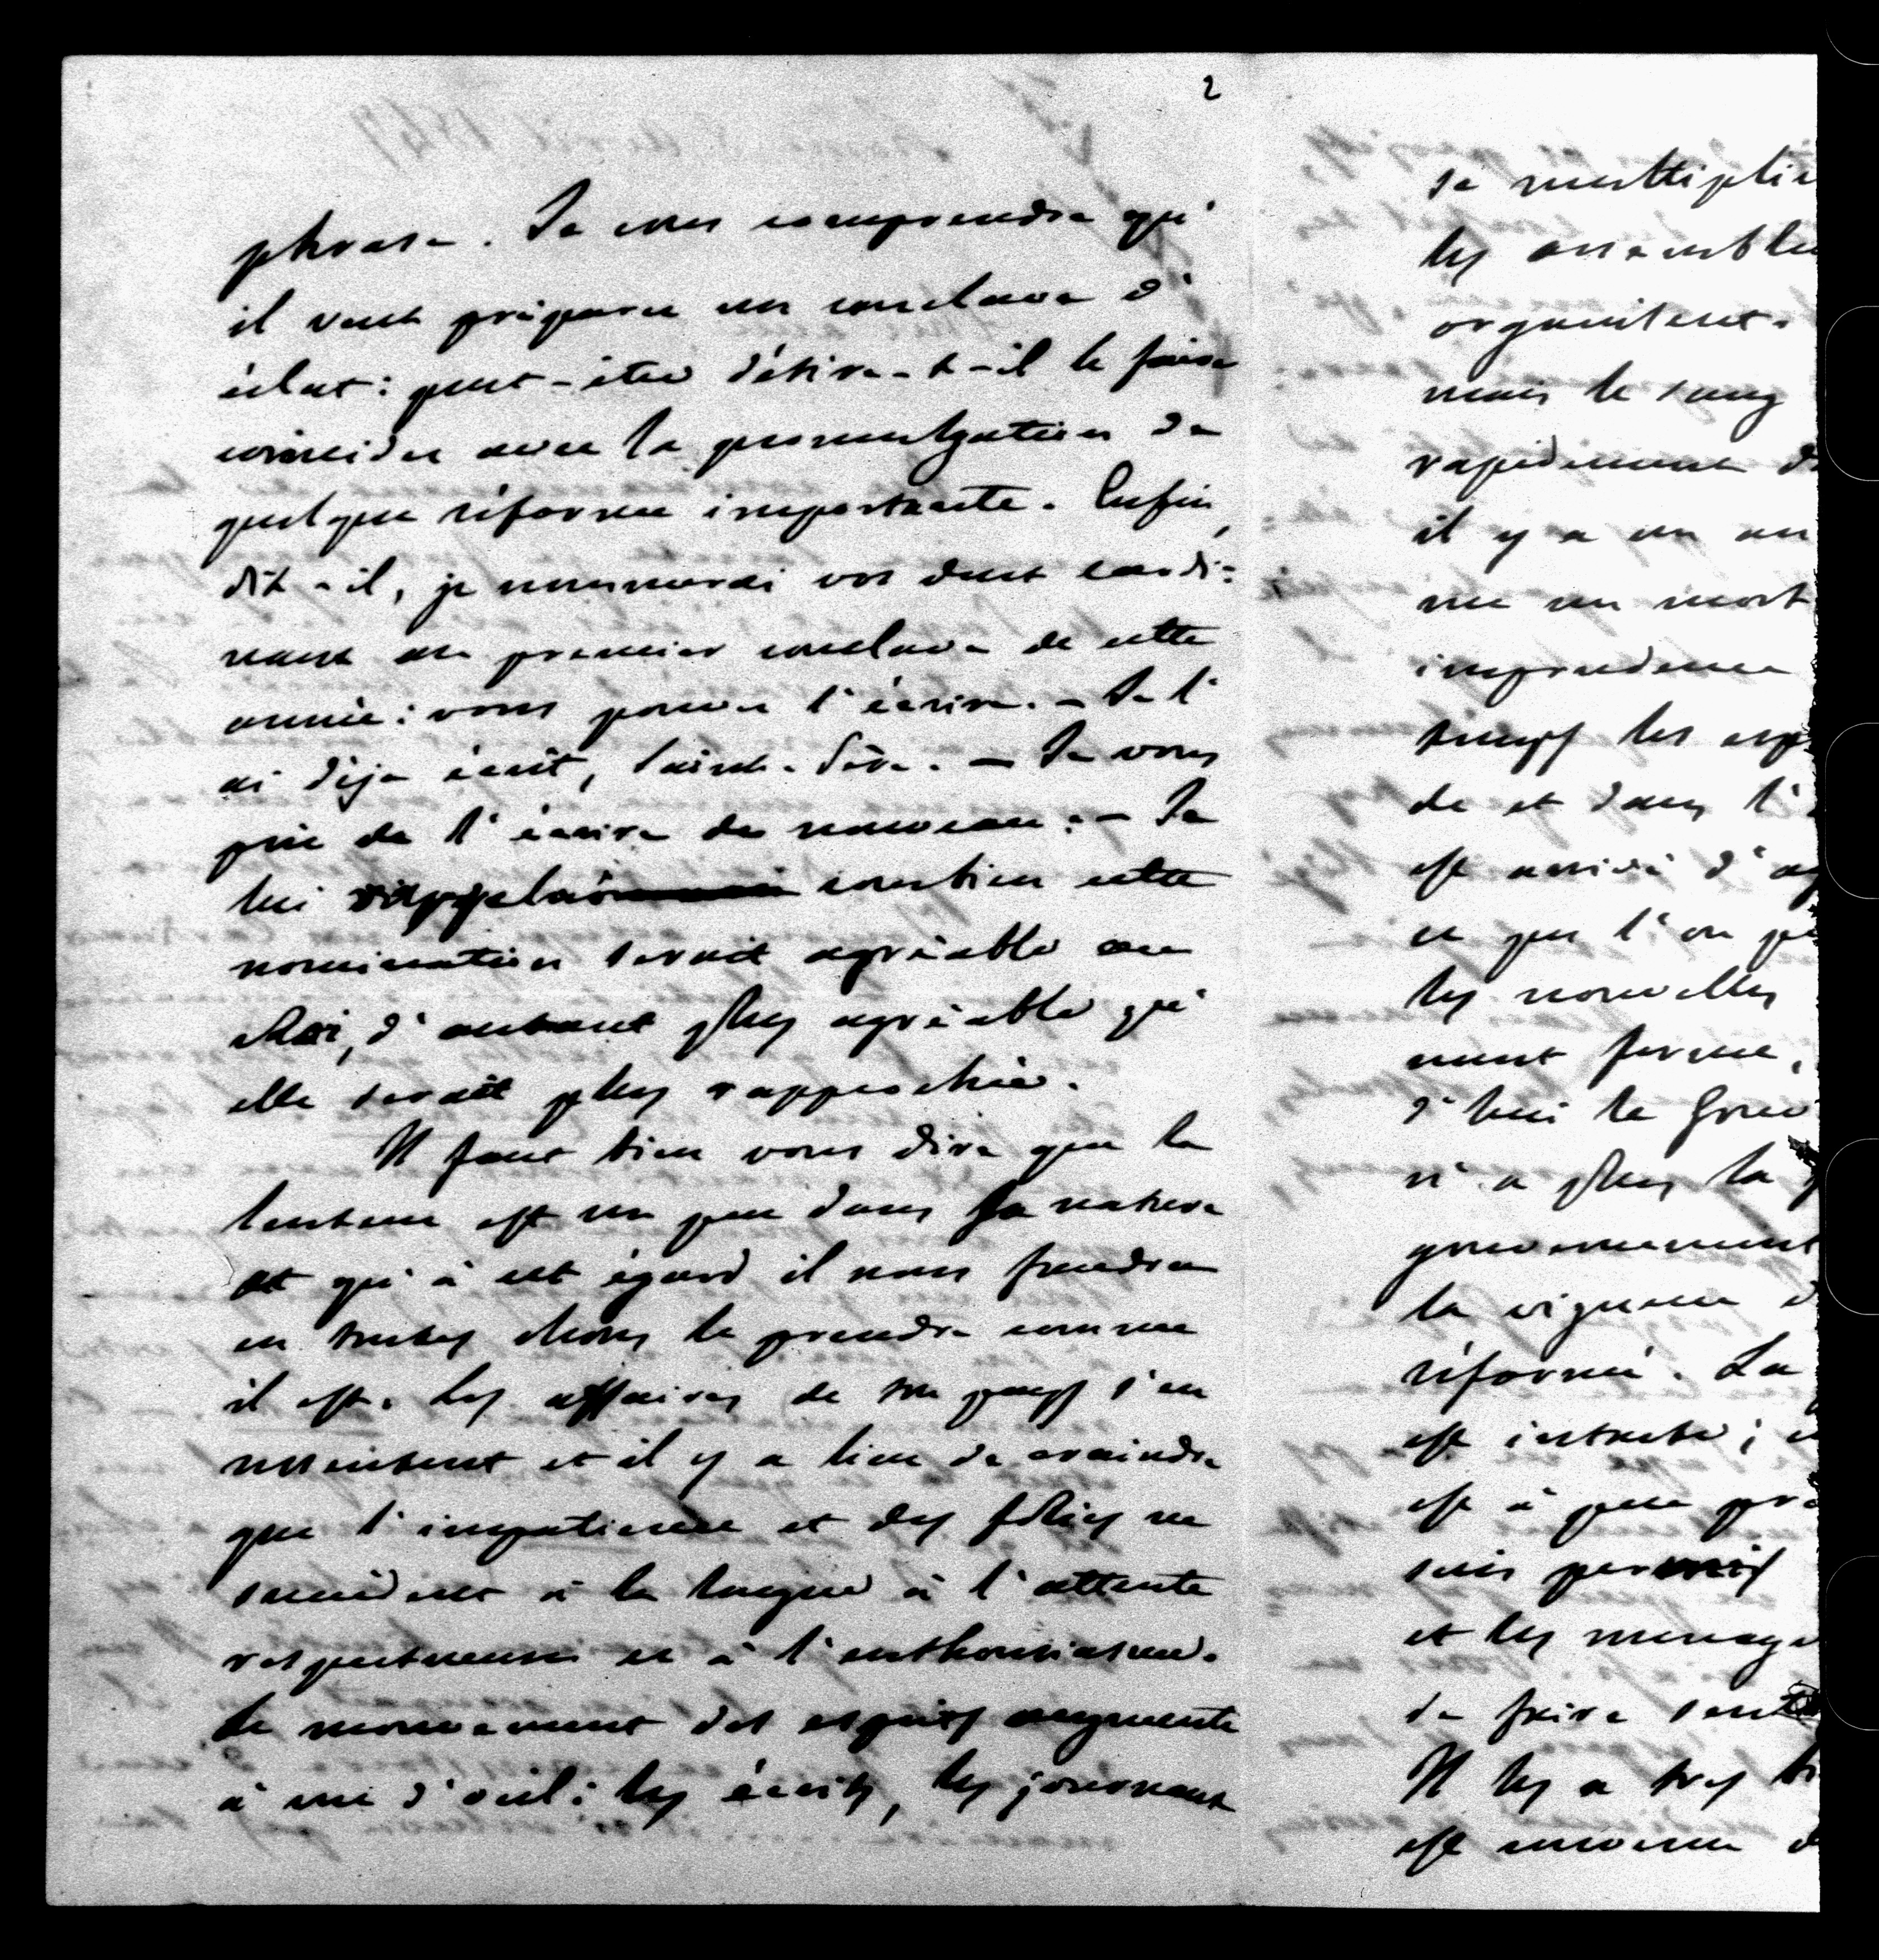 2
phrase. Je crus comprendre qu'
il veut préparer un conclave d'
éclat : peut-être désire-t-il le faire
coïncider avec la promulgation de
quelque réforme importante. Enfin,
dit-il, je nommerai vos deux cardi=
naux au premier conclave de cette
année : vous pouvez l'écrire. – Je l'
ai déja écrit, Saint-Père. – Je vous
prie de l'écrire de nouveau. – Je
lui rappelai combien cette
nomination serait agréable au
Roi, d'autant plus agréable qu'
elle serait plus rapprochée.
Il faut bien vous dire que la
lenteur est un peu dans sa nature
et qu'à cet égard il nous faudra
en toutes choses le prendre comme
il est. Les affaires de son pays s'en
ressentent et il y a lieu de craindre
que l'impatience et des folies ne
succèdent à la longue à l'attente
respectueuse et à l'enthousiasme.
Le mouvement des esprits augmente
à vue d'œil : les écrits, les journaux
se multiplie
les assemblé
organisent.
mais le sang
rapidement d
il y a un an
me un mort
imprudence
temps les esp
de et dans l'
est arrivé d'
ce que l'on p
les nouvelles
ment forme,
d'hui le Gouv
n'a plus la
gouvernement
la vigueur d
réformé. La
est intacte ;
est à peu pr
suis permis
et les ménage
de faire sent
Il les a très bi
est convenu d